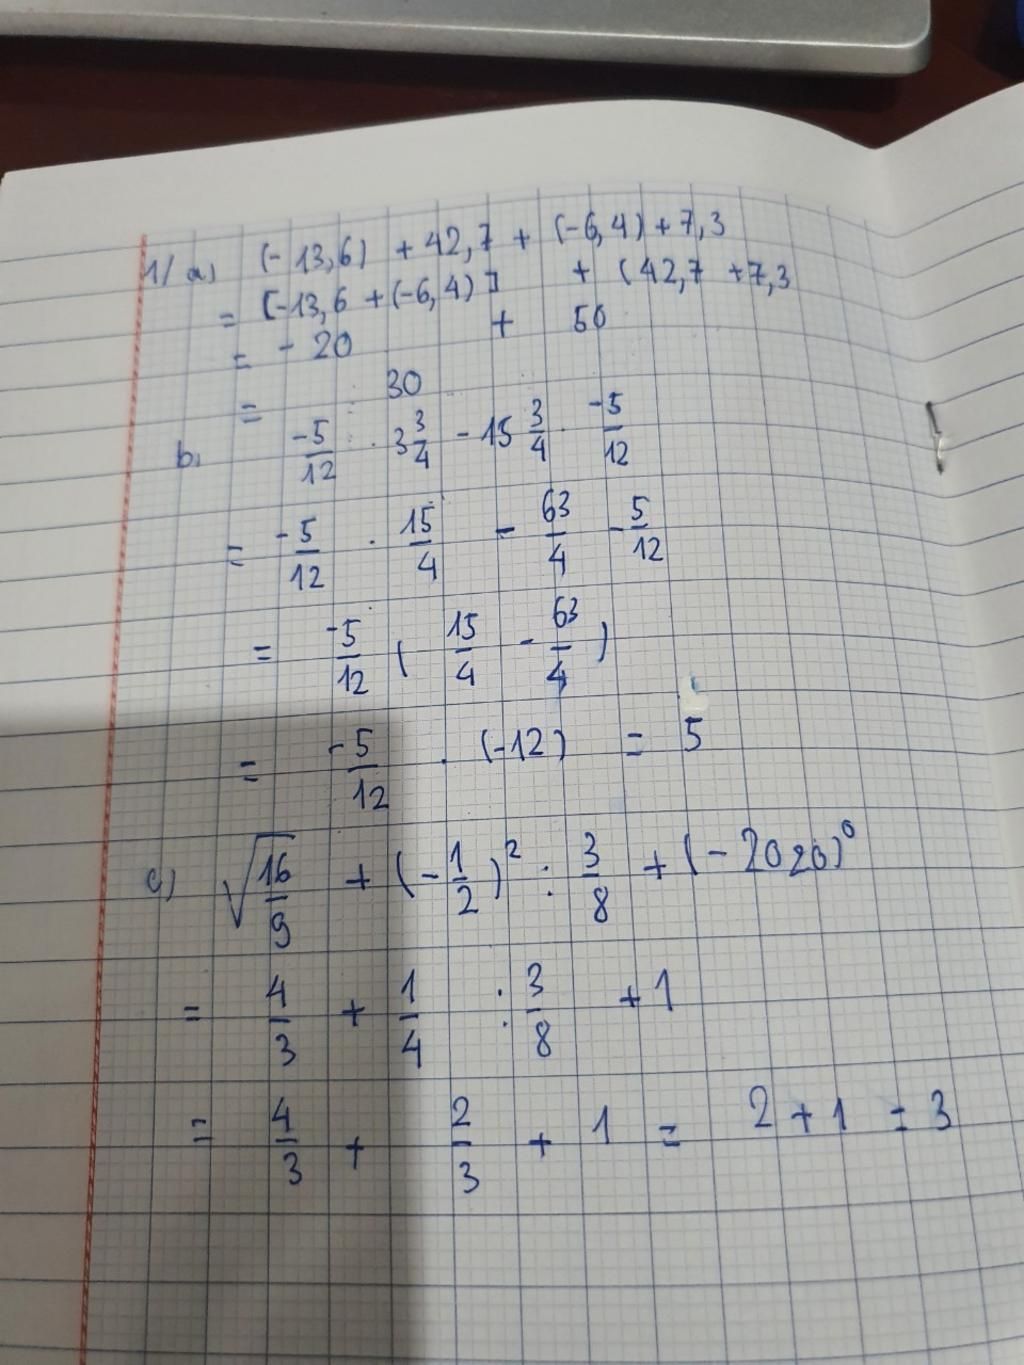 1/ a) (-13,6) + 42,7 + (-6,4) + 7,3
= [-13,6 + (-6,4)] + (42,7 + 7,3
= -20 + 50
= 30
b. -5/12 · 3 3/4 - 15 3/4 · -5/12
= -5/12 · 15/4 - 63/4 - 5/12
= -5/12 ( 15/4 - 63/4 )
= -5/12 · (-12) = 5
c) √16/9 + (-1/2)² : 3/8 + (-2020)⁰
= 4/3 + 1/4 : 3/8 + 1
= 4/3 + 2/3 + 1 = 2 + 1 = 3